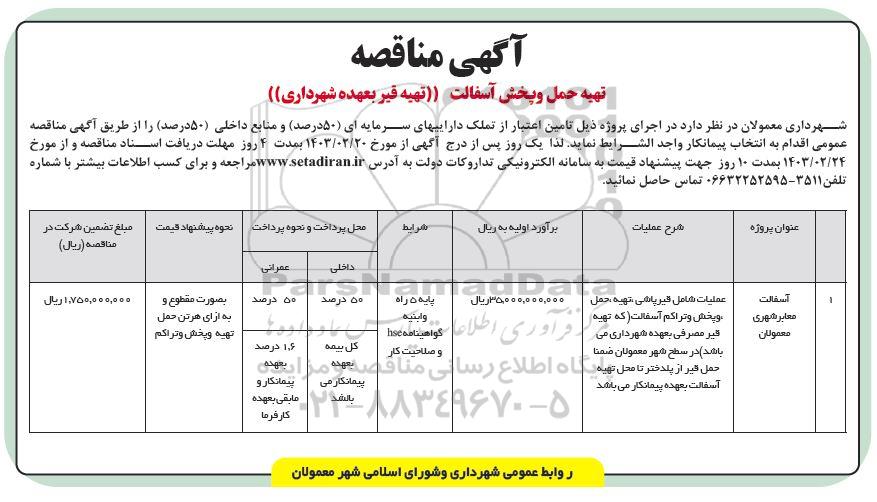 آگهی مناقصه
تهیه حمل وپخش آسفالت ((تهیه قیر بعهده شهرداری))
شهرداری معمولان در نظر دارد در اجرای پروژه ذیل تامین اعتبار از تملک داراییهای سرمایه ای (۵۰درصد) و منابع داخلی (۵۰درصد) را از طریق آگهی مناقصه
عمومی اقدام به انتخاب پیمانکار واجد الشرایط نماید. لذا یک روز پس از درج آگهی از مورخ ۱۴۰۳/۰۲/۲۰ بمدت ۴ روز مهلت دریافت اسناد مناقصه و از مورخ
۱۴۰۳/۰۲/۲۴ بمدت ۱۰ روز جهت پیشنهاد قیمت به سامانه الکترونیکی تدارکات دولت به آدرس www.setadiran.ir مراجعه و برای کسب اطلاعات بیشتر با شماره
تلفن۳۵۱۱-۰۶۶۳۲۲۵۲۵۹۵ تماس حاصل نمائید.
عنوان پروژه
شرح عملیات
برآورد اولیه به ریال
شرایط
محل پرداخت و نحوه پرداخت
داخلی
عمرانی
نحوه پیشنهاد قیمت
مبلغ تضمین شرکت در
مناقصه(ریال)
۱
آسفالت
معابرشهری
معمولان
عملیات شامل قیرپاشی ،تهیه ،حمل
،وپخش وتراکم آسفالت( که تهیه
قیر مصرفی بعهده شهرداری می
باشد)در سطح شهر معمولان ضمنا
حمل قیر از پلدختر تا محل تهیه
آسفالت بعهده پیمانکار می باشد
۳۵,۰۰۰,۰۰۰,۰۰۰ریال
پایه ۵ راه
وابنیه
گواهینامه hse
و صلاحیت کار
۵۰ درصد
کل بیمه
بعهده
پیمانکار می
بالشد
۵۰ درصد
۱,۶ درصد
بعهده
پیمانکار و
مابقی بعهده
کارفرما
بصورت مقطوع و
به ازای هرتن حمل
تهیه وپخش وتراکم
۱,۷۵۰,۰۰۰,۰۰۰ریال
ParsNamadData
پایگاه اطلاع رسانی مناقصه و مزایده
۰۲۱-۸۸۳۴۹۶۷۰-۵
ر وابط عمومی شهرداری وشورای اسلامی شهر معمولان